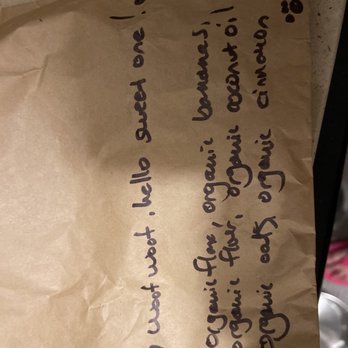 woot woot, hello sweet one!
organic flax, organic bananas,
organic flour, organic coconut oil
organic oats, organic cinnamon